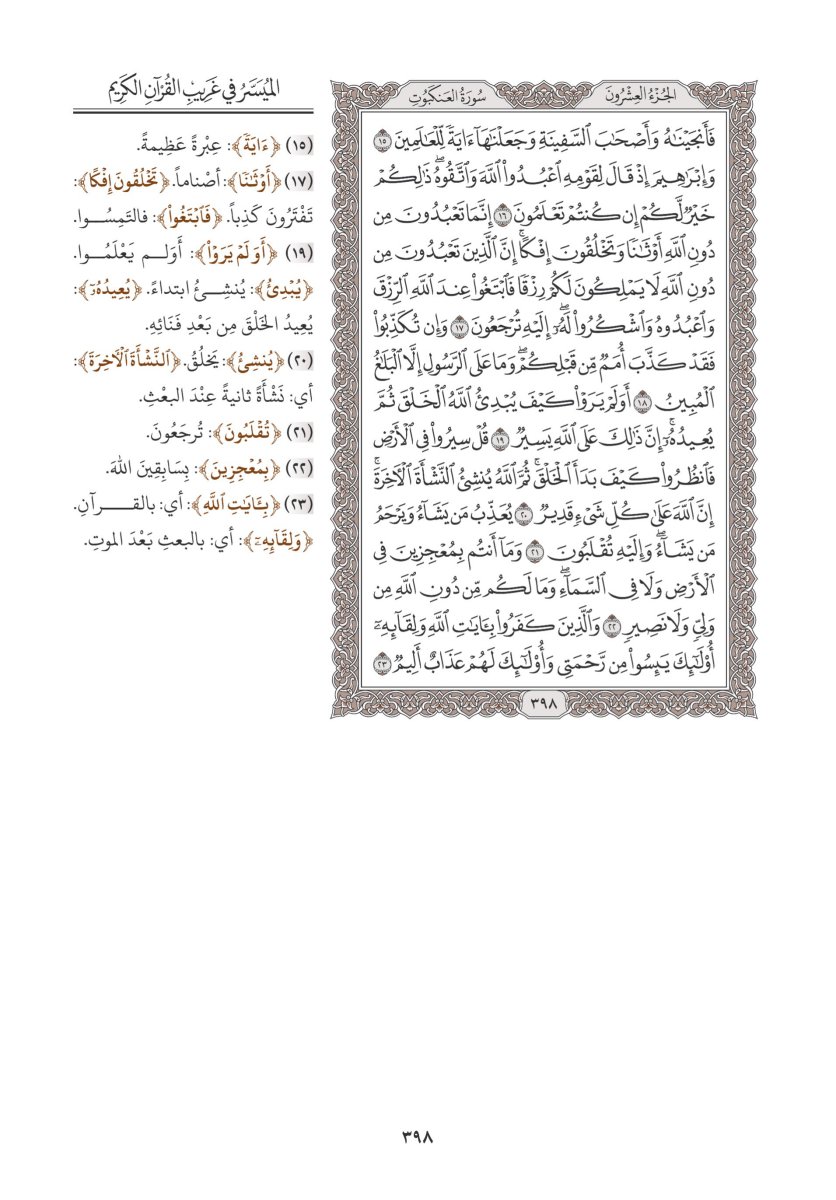 الجُزْءُ العِشْرُونَ
سُورَةُ العَنكَبُوتِ
فَأَنجَيْنَٰهُ وَأَصْحَٰبَ ٱلسَّفِينَةِ وَجَعَلْنَٰهَآ ءَايَةً لِّلْعَٰلَمِينَ ١٥
وَإِبْرَٰهِيمَ إِذْ قَالَ لِقَوْمِهِ ٱعْبُدُوا۟ ٱللَّهَ وَٱتَّقُوهُ ۖ ذَٰلِكُمْ
خَيْرٌ لَّكُمْ إِن كُنتُمْ تَعْلَمُونَ ١٦ إِنَّمَا تَعْبُدُونَ مِن
دُونِ ٱللَّهِ أَوْثَٰنًا وَتَخْلُقُونَ إِفْكًا ۚ إِنَّ ٱلَّذِينَ تَعْبُدُونَ مِن
دُونِ ٱللَّهِ لَا يَمْلِكُونَ لَكُمْ رِزْقًا فَٱبْتَغُوا۟ عِندَ ٱللَّهِ ٱلرِّزْقَ
وَٱعْبُدُوهُ وَٱشْكُرُوا۟ لَهُۥٓ ۖ إِلَيْهِ تُرْجَعُونَ ١٧ وَإِن تُكَذِّبُوا۟
فَقَدْ كَذَّبَ أُمَمٌ مِّن قَبْلِكُمْ ۖ وَمَا عَلَى ٱلرَّسُولِ إِلَّا ٱلْبَلَٰغُ
ٱلْمُبِينُ ١٨ أَوَلَمْ يَرَوْا۟ كَيْفَ يُبْدِئُ ٱللَّهُ ٱلْخَلْقَ ثُمَّ
يُعِيدُهُۥٓ ۚ إِنَّ ذَٰلِكَ عَلَى ٱللَّهِ يَسِيرٌ ١٩ قُلْ سِيرُوا۟ فِى ٱلْأَرْضِ
فَٱنظُرُوا۟ كَيْفَ بَدَأَ ٱلْخَلْقَ ۚ ثُمَّ ٱللَّهُ يُنشِئُ ٱلنَّشْأَةَ ٱلْءَاخِرَةَ ۚ
إِنَّ ٱللَّهَ عَلَىٰ كُلِّ شَىْءٍ قَدِيرٌ ٢٠ يُعَذِّبُ مَن يَشَآءُ وَيَرْحَمُ
مَن يَشَآءُ ۖ وَإِلَيْهِ تُقْلَبُونَ ٢١ وَمَآ أَنتُم بِمُعْجِزِينَ فِى
ٱلْأَرْضِ وَلَا فِى ٱلسَّمَآءِ ۖ وَمَا لَكُم مِّن دُونِ ٱللَّهِ مِن
وَلِىٍّ وَلَا نَصِيرٍ ٢٢ وَٱلَّذِينَ كَفَرُوا۟ بِـَٔايَٰتِ ٱللَّهِ وَلِقَآئِهِۦٓ
أُو۟لَٰٓئِكَ يَئِسُوا۟ مِن رَّحْمَتِى وَأُو۟لَٰٓئِكَ لَهُمْ عَذَابٌ أَلِيمٌ ٢٣
٣٩٨
المُيَسَّرُ في غَرِيبِ القُرْآنِ الكَرِيمِ
(١٥) ﴿ءَايَةً﴾: عِبْرَةً عَظِيمةً.
(١٧) ﴿أَوْثَٰنًا﴾: أصْناماً. ﴿تَخْلُقُونَ إِفْكًا﴾:
تَفْتَرُونَ كَذِباً. ﴿فَٱبْتَغُوا۟﴾: فالتَمِسُوا.
(١٩) ﴿أَوَلَمْ يَرَوْا۟﴾: أَوَلم يَعْلَمُوا.
﴿يُبْدِئُ﴾: يُنشِئُ ابتداءً. ﴿يُعِيدُهُۥٓ﴾:
يُعِيدُ الخَلْقَ مِن بَعْدِ فَنَائِهِ.
(٢٠) ﴿يُنشِئُ﴾: يَخلُقُ. ﴿ٱلنَّشْأَةَ ٱلْءَاخِرَةَ﴾:
أي: نَشْأَةً ثانيةً عِنْدَ البعْثِ.
(٢١) ﴿تُقْلَبُونَ﴾: تُرجَعُونَ.
(٢٢) ﴿بِمُعْجِزِينَ﴾: بِسَابِقِينَ اللهَ.
(٢٣) ﴿بِـَٔايَٰتِ ٱللَّهِ﴾: أي: بالقرآنِ.
﴿وَلِقَآئِهِۦٓ﴾: أي: بالبعثِ بَعْدَ الموتِ.
٣٩٨